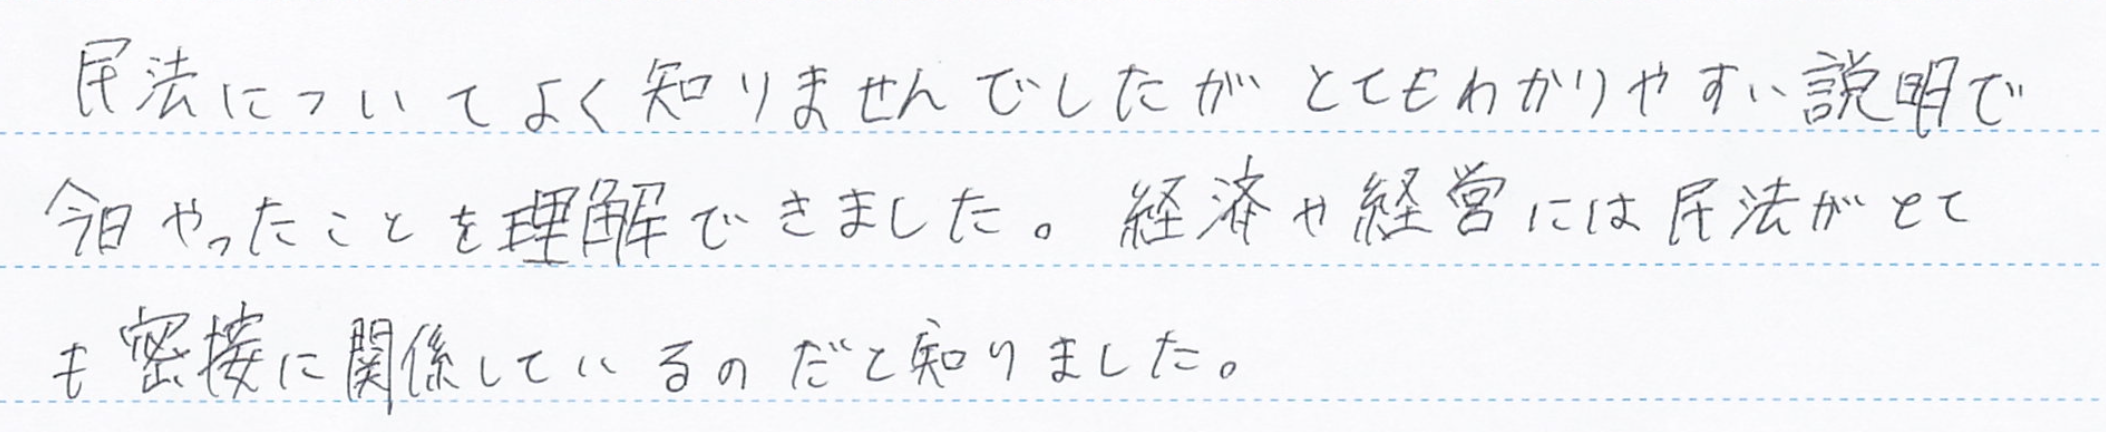 民法についてよく知りませんでしたがとてもわかりやすい説明で
今日やったことを理解できました。経済や経営には民法がとて
も密接に関係しているのだと知りました。